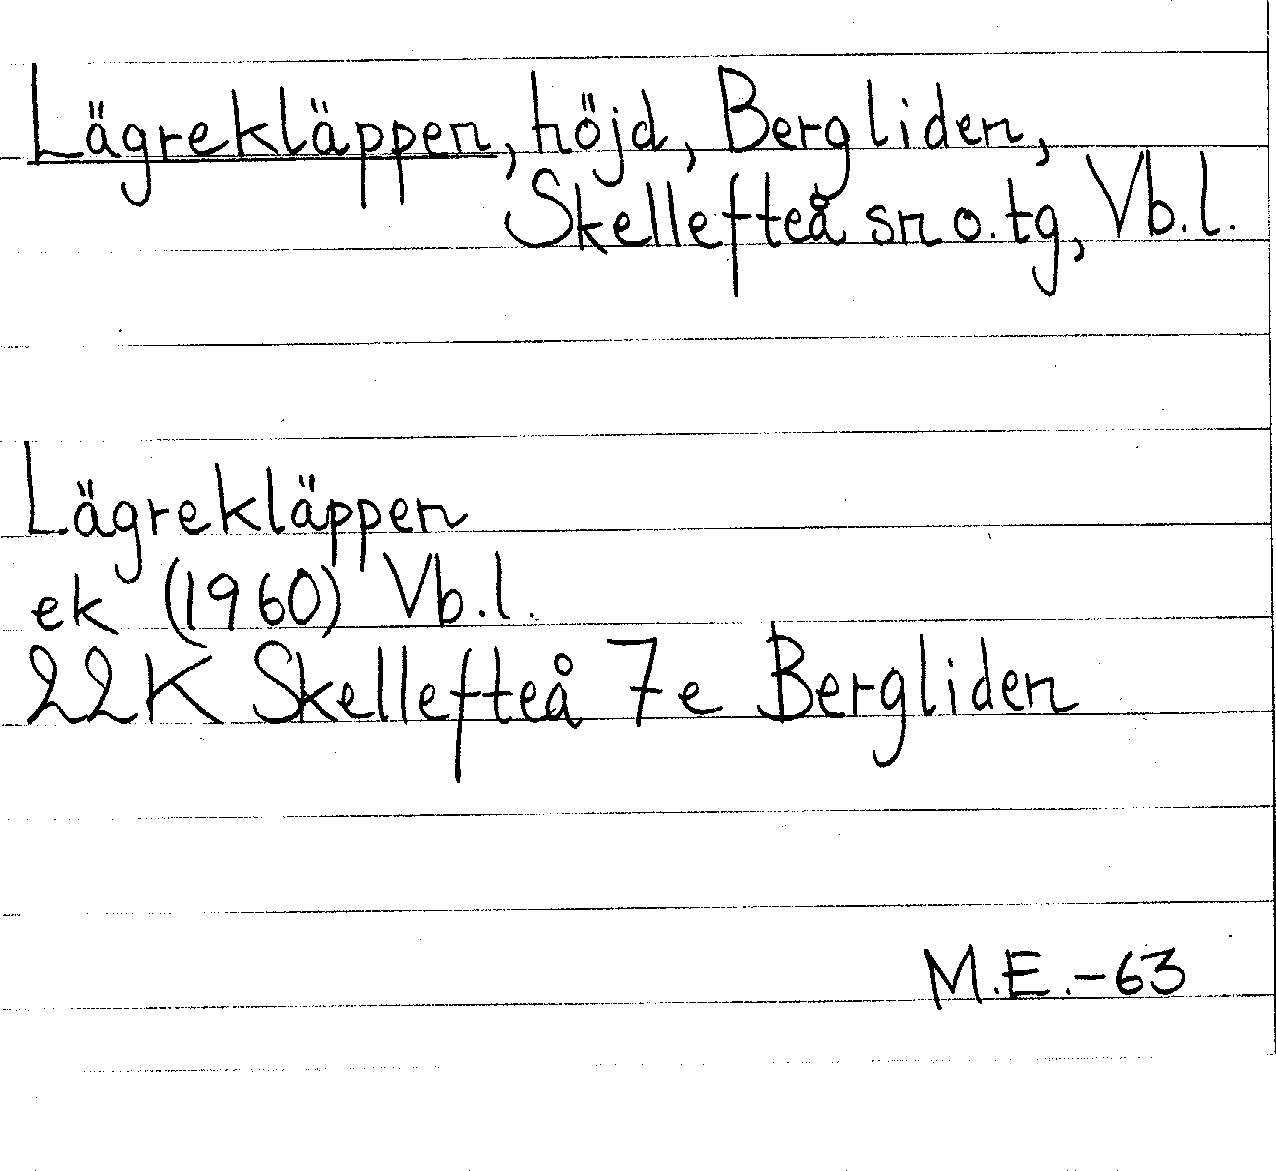 Lägrekläppen, höjd, Bergliden,
Skellefteå sn o. tg, Vb. l.
Lägrekläppen
ek (1960) Vb. l.
22K Skellefteå 7e Bergliden
M.E.-63